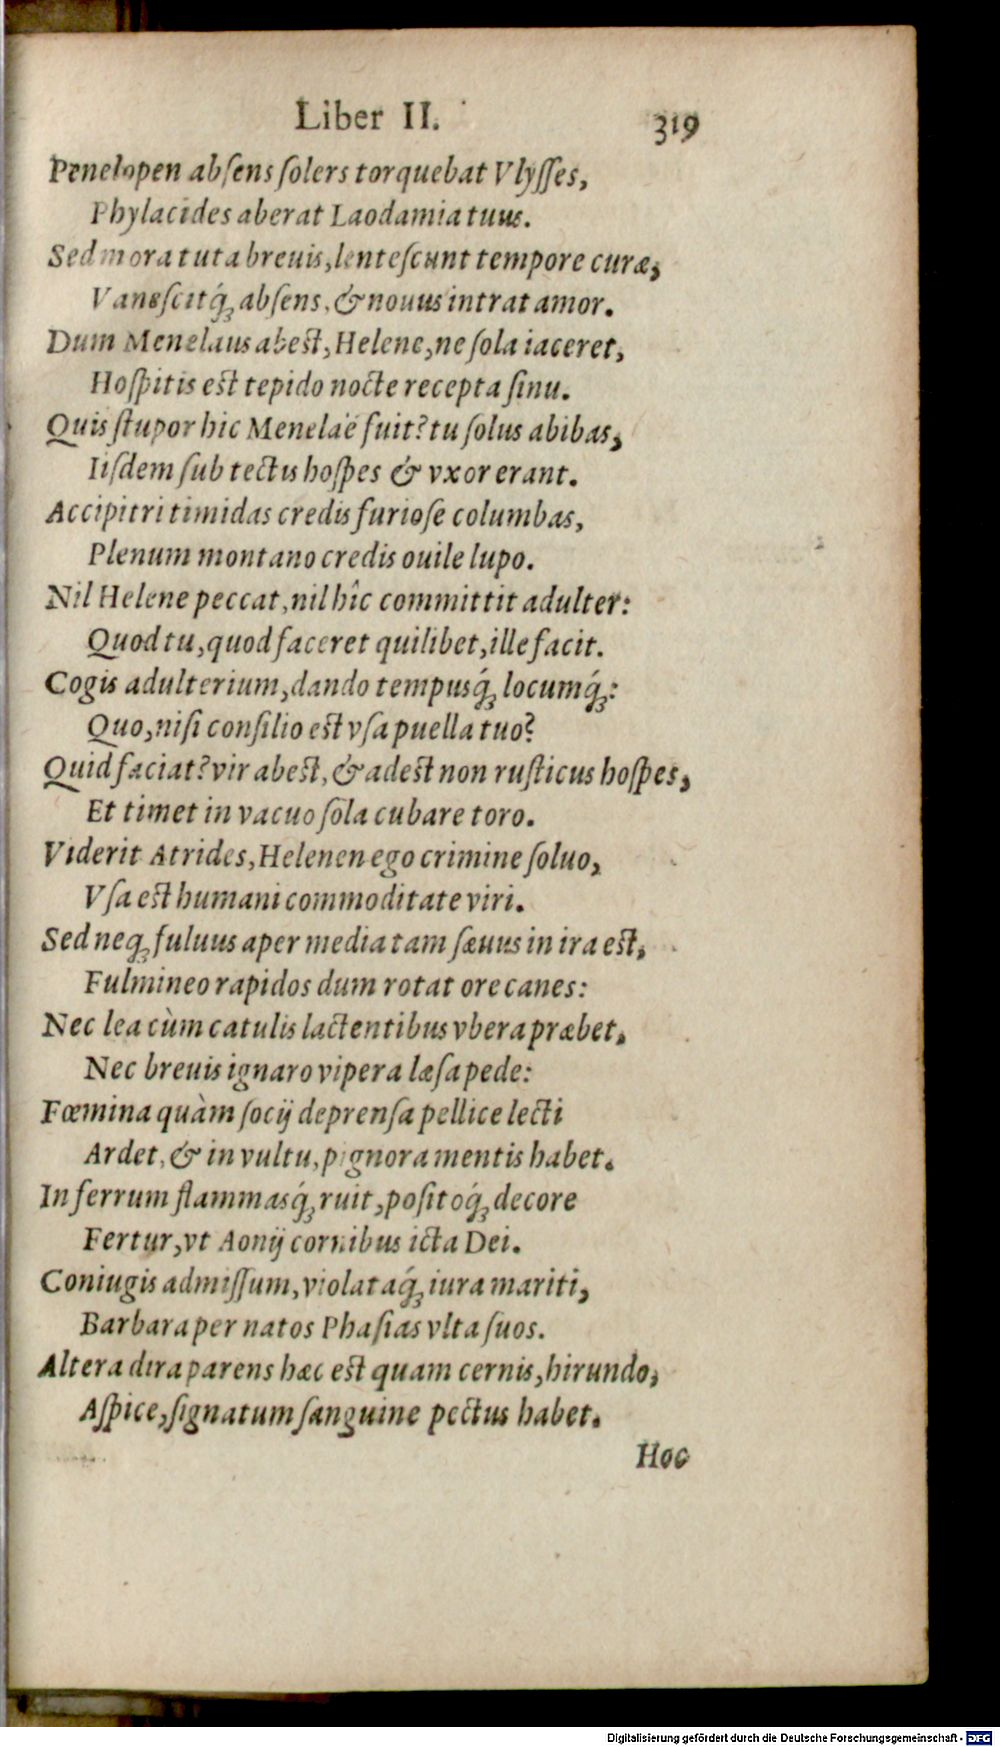 Liber II. 319
Penelopen absens solers torquebat Vlysses,
Phylacides aberat Laodamia tuus.
Sed mora tuta breuis, lentescunt tempore curæ,
Vanescitq́; absens, & nouus intrat amor.
Dum Menelaus abest, Helene, ne sola iaceret,
Hospitis est tepido nocte recepta sinu.
Quis stupor hic Menelaë fuit? tu solus abibas,
Iisdem sub tectis hospes & vxor erant.
Accipitri timidas credis furiose columbas,
Plenum montano credis ouile lupo.
Nil Helene peccat, nil hîc committit adulter:
Quod tu, quod faceret quilibet, ille facit.
Cogis adulterium, dando tempusq́; locumq́;:
Quo, nisi consilio est vsa puella tuo?
Quid faciat? vir abest, & adest non rusticus hospes,
Et timet in vacuo sola cubare toro.
Viderit Atrides, Helenen ego crimine soluo,
Vsa est humani commoditate viri.
Sed neq; fuluus aper media tam sæuus in ira est,
Fulmineo rapidos dum rotat ore canes:
Nec lea cùm catulis lactentibus vbera præbet,
Nec breuis ignaro vipera læsa pede:
Fœmina quàm socij deprensa pellice lecti
Ardet, & in vultu, pignora mentis habet.
In ferrum flammasq́; ruit, positoq́; decore
Fertur, vt Aonij cornibus icta Dei.
Coniugis admissum, violataq́; iura mariti,
Barbara per natos Phasias vlta suos.
Altera dira parens hæc est quam cernis, hirundo,
Aspice, signatum sanguine pectus habet.
Hoc
Digitalisierung gefördert durch die Deutsche Forschungsgemeinschaft - DFG